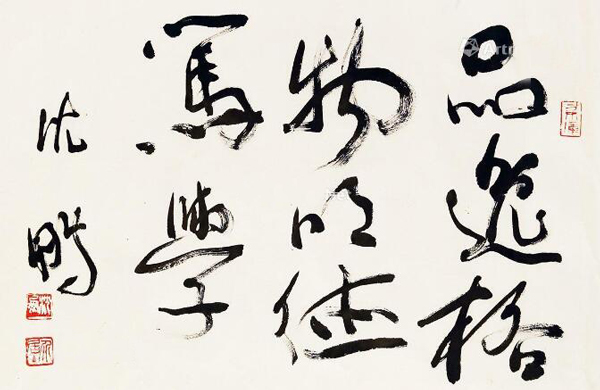 品逸格
物明德
篤學
沈鵬